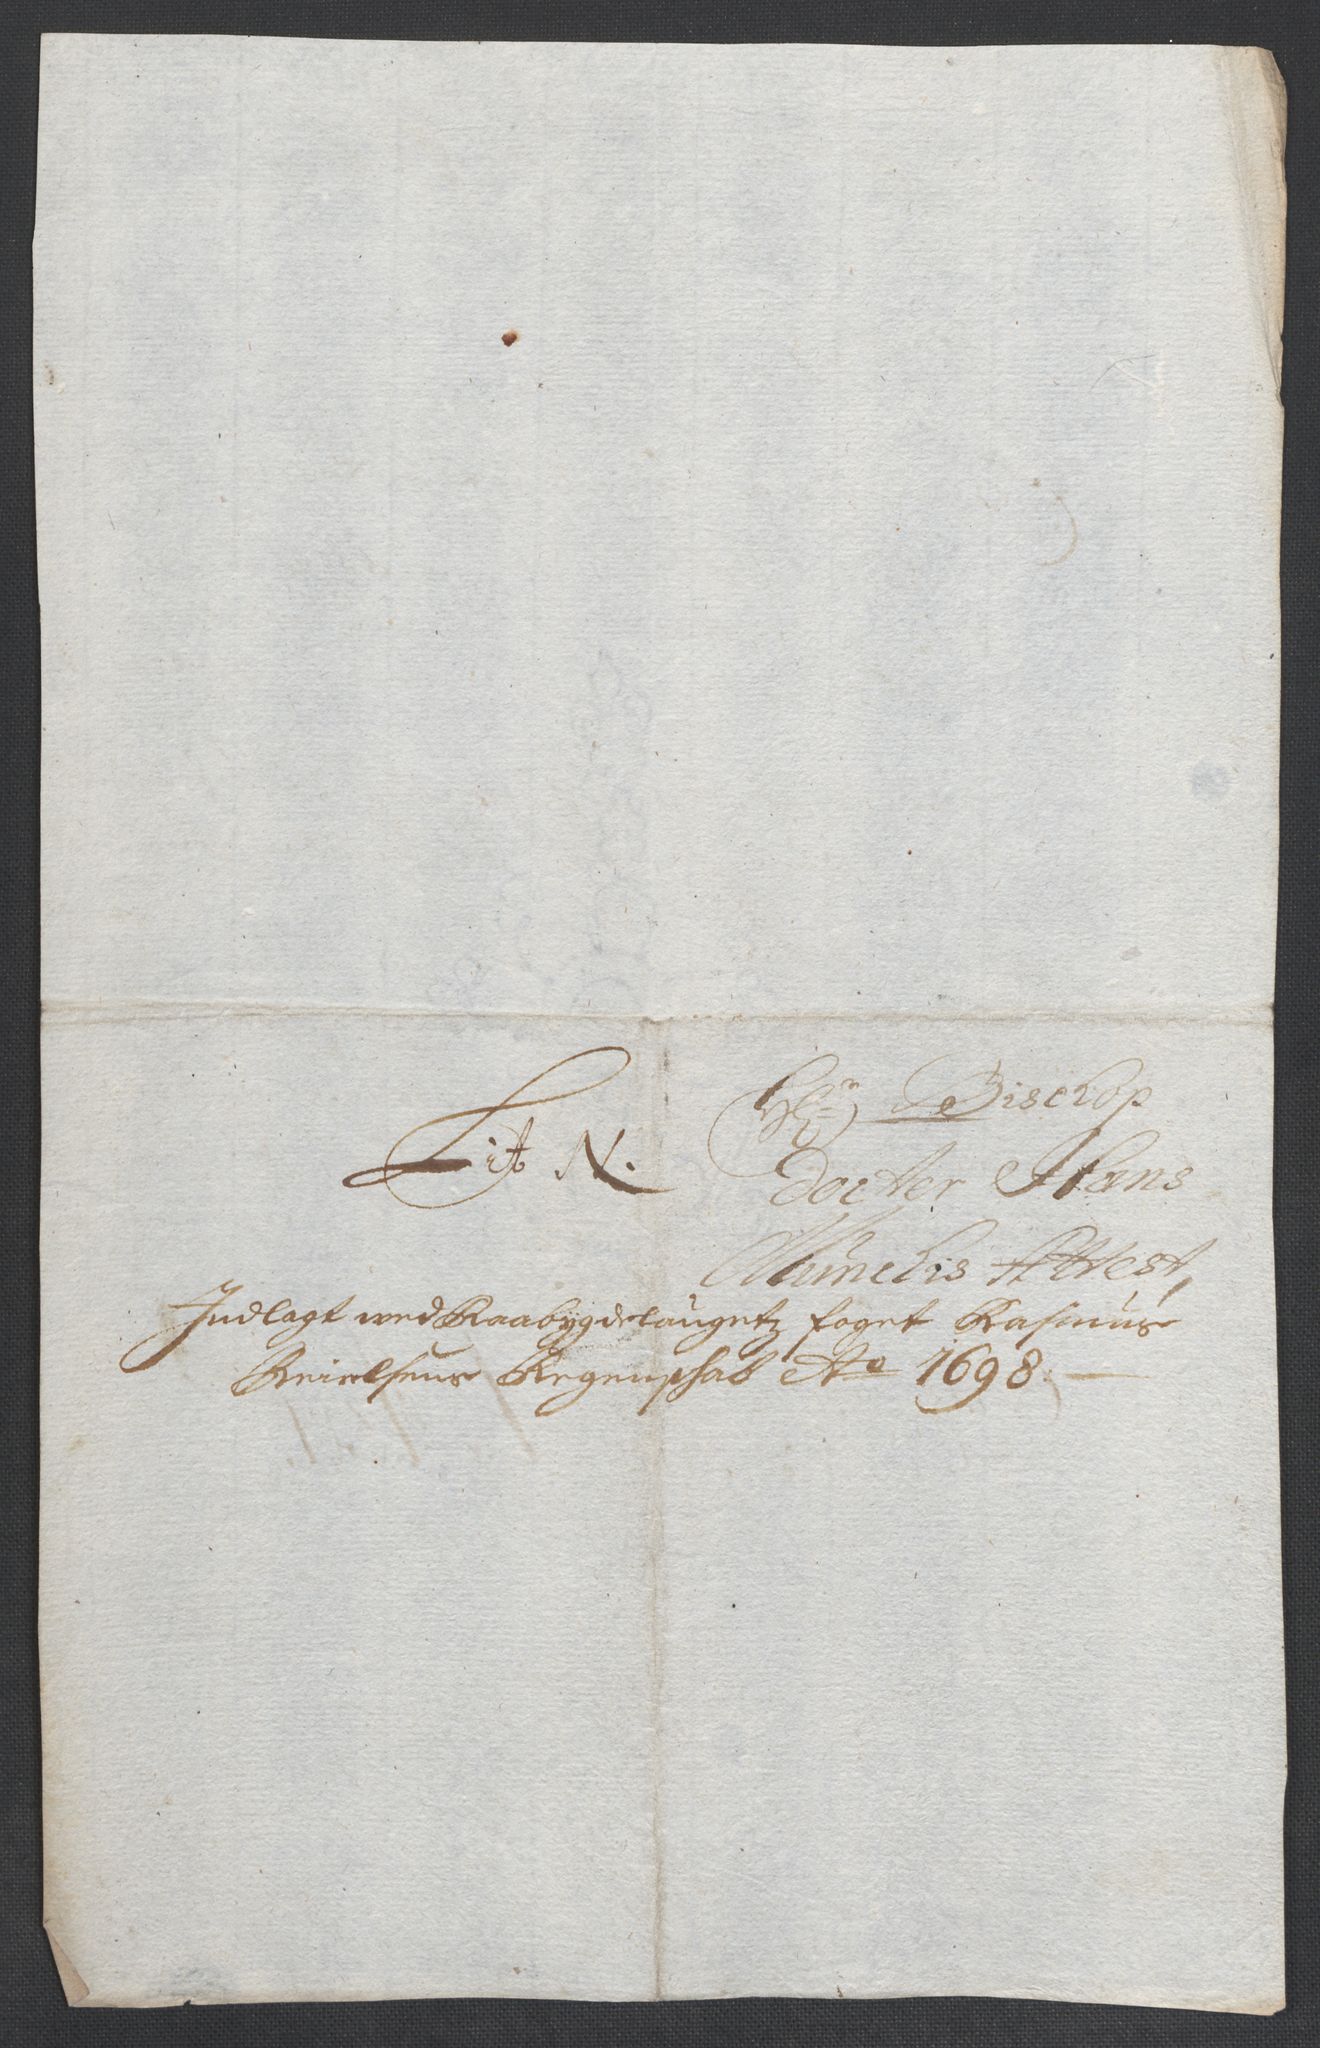 Lit N.
Hr: Bischop
Docter Hans
Munchis Attest,
Indlagt wed Raabygdelaugetz foget Rasmus
Neielsens Regenschab Ao 1698